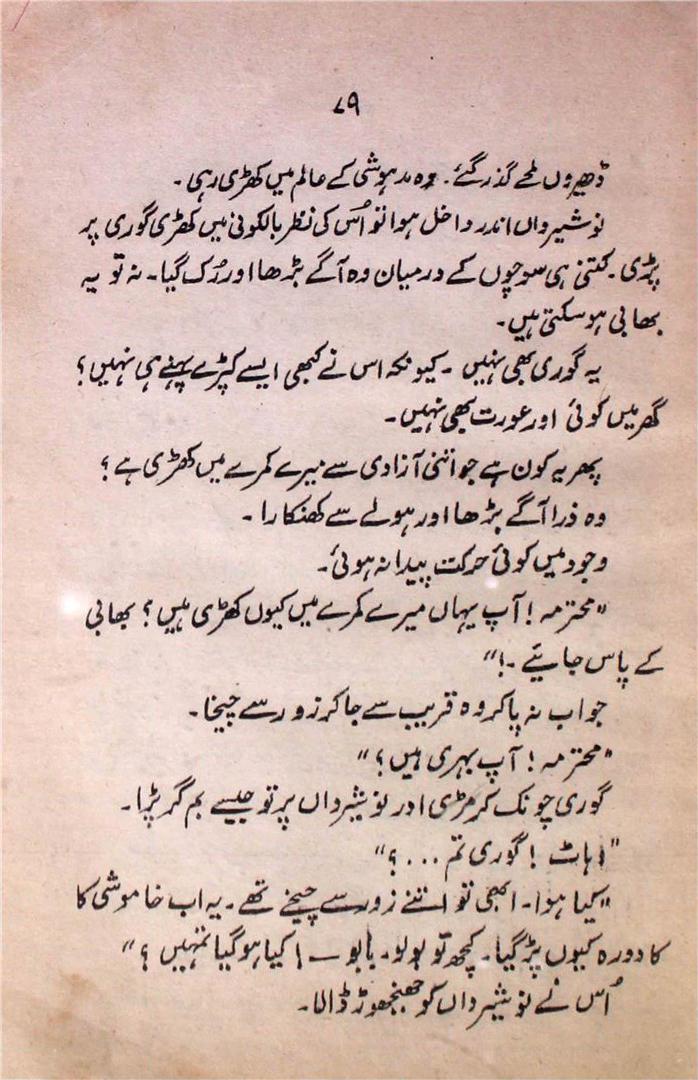 ۷۹
ڈھیروں لمحے گذر گئے۔ وہ مدہوشی کے عالم میں کھڑی رہی۔
نوشیرواں اندر داخل ہوا تو اُس کی نظر بالکونی میں کھڑی گوری پر
پڑی۔ کتنی ہی سوچوں کے درمیان وہ آگے بڑھا اور رُک گیا۔ نہ تو یہ
بھابی ہو سکتی ہیں۔
یہ گوری بھی نہیں۔ کیونکہ اس نے کبھی ایسے کپڑے پہنے ہی نہیں؟
گھر میں کوئی اور عورت بھی نہیں۔
پھر یہ کون ہے جو اتنی آزادی سے میرے کمرے میں کھڑی ہے؟
وہ ذرا آگے بڑھا اور ہولے سے کھنکارا۔
وجود میں کوئی حرکت پیدا نہ ہوئی۔
"محترمہ! آپ یہاں میرے کمرے میں کیوں کھڑی ہیں؟ بھابی
کے پاس جائیے۔!"
جواب نہ پا کر وہ قریب سے جا کر زور سے چیخا۔
"محترمہ! آپ بہری ہیں؟"
گوری چونک کر مڑی اور نوشیرواں پر تو جیسے بم گر پڑا۔
"وہاٹ! گوری تم ...؟"
"کیا ہوا۔ ابھی تو اتنے زور سے چیخے تھے۔ یہ اب خاموشی کا
کا دورہ کیوں پڑ گیا۔ کچھ تو بولو۔ بابو —! کیا ہو گیا تمہیں؟"
اُس نے نوشیرواں کو جھنجھوڑ ڈالا۔